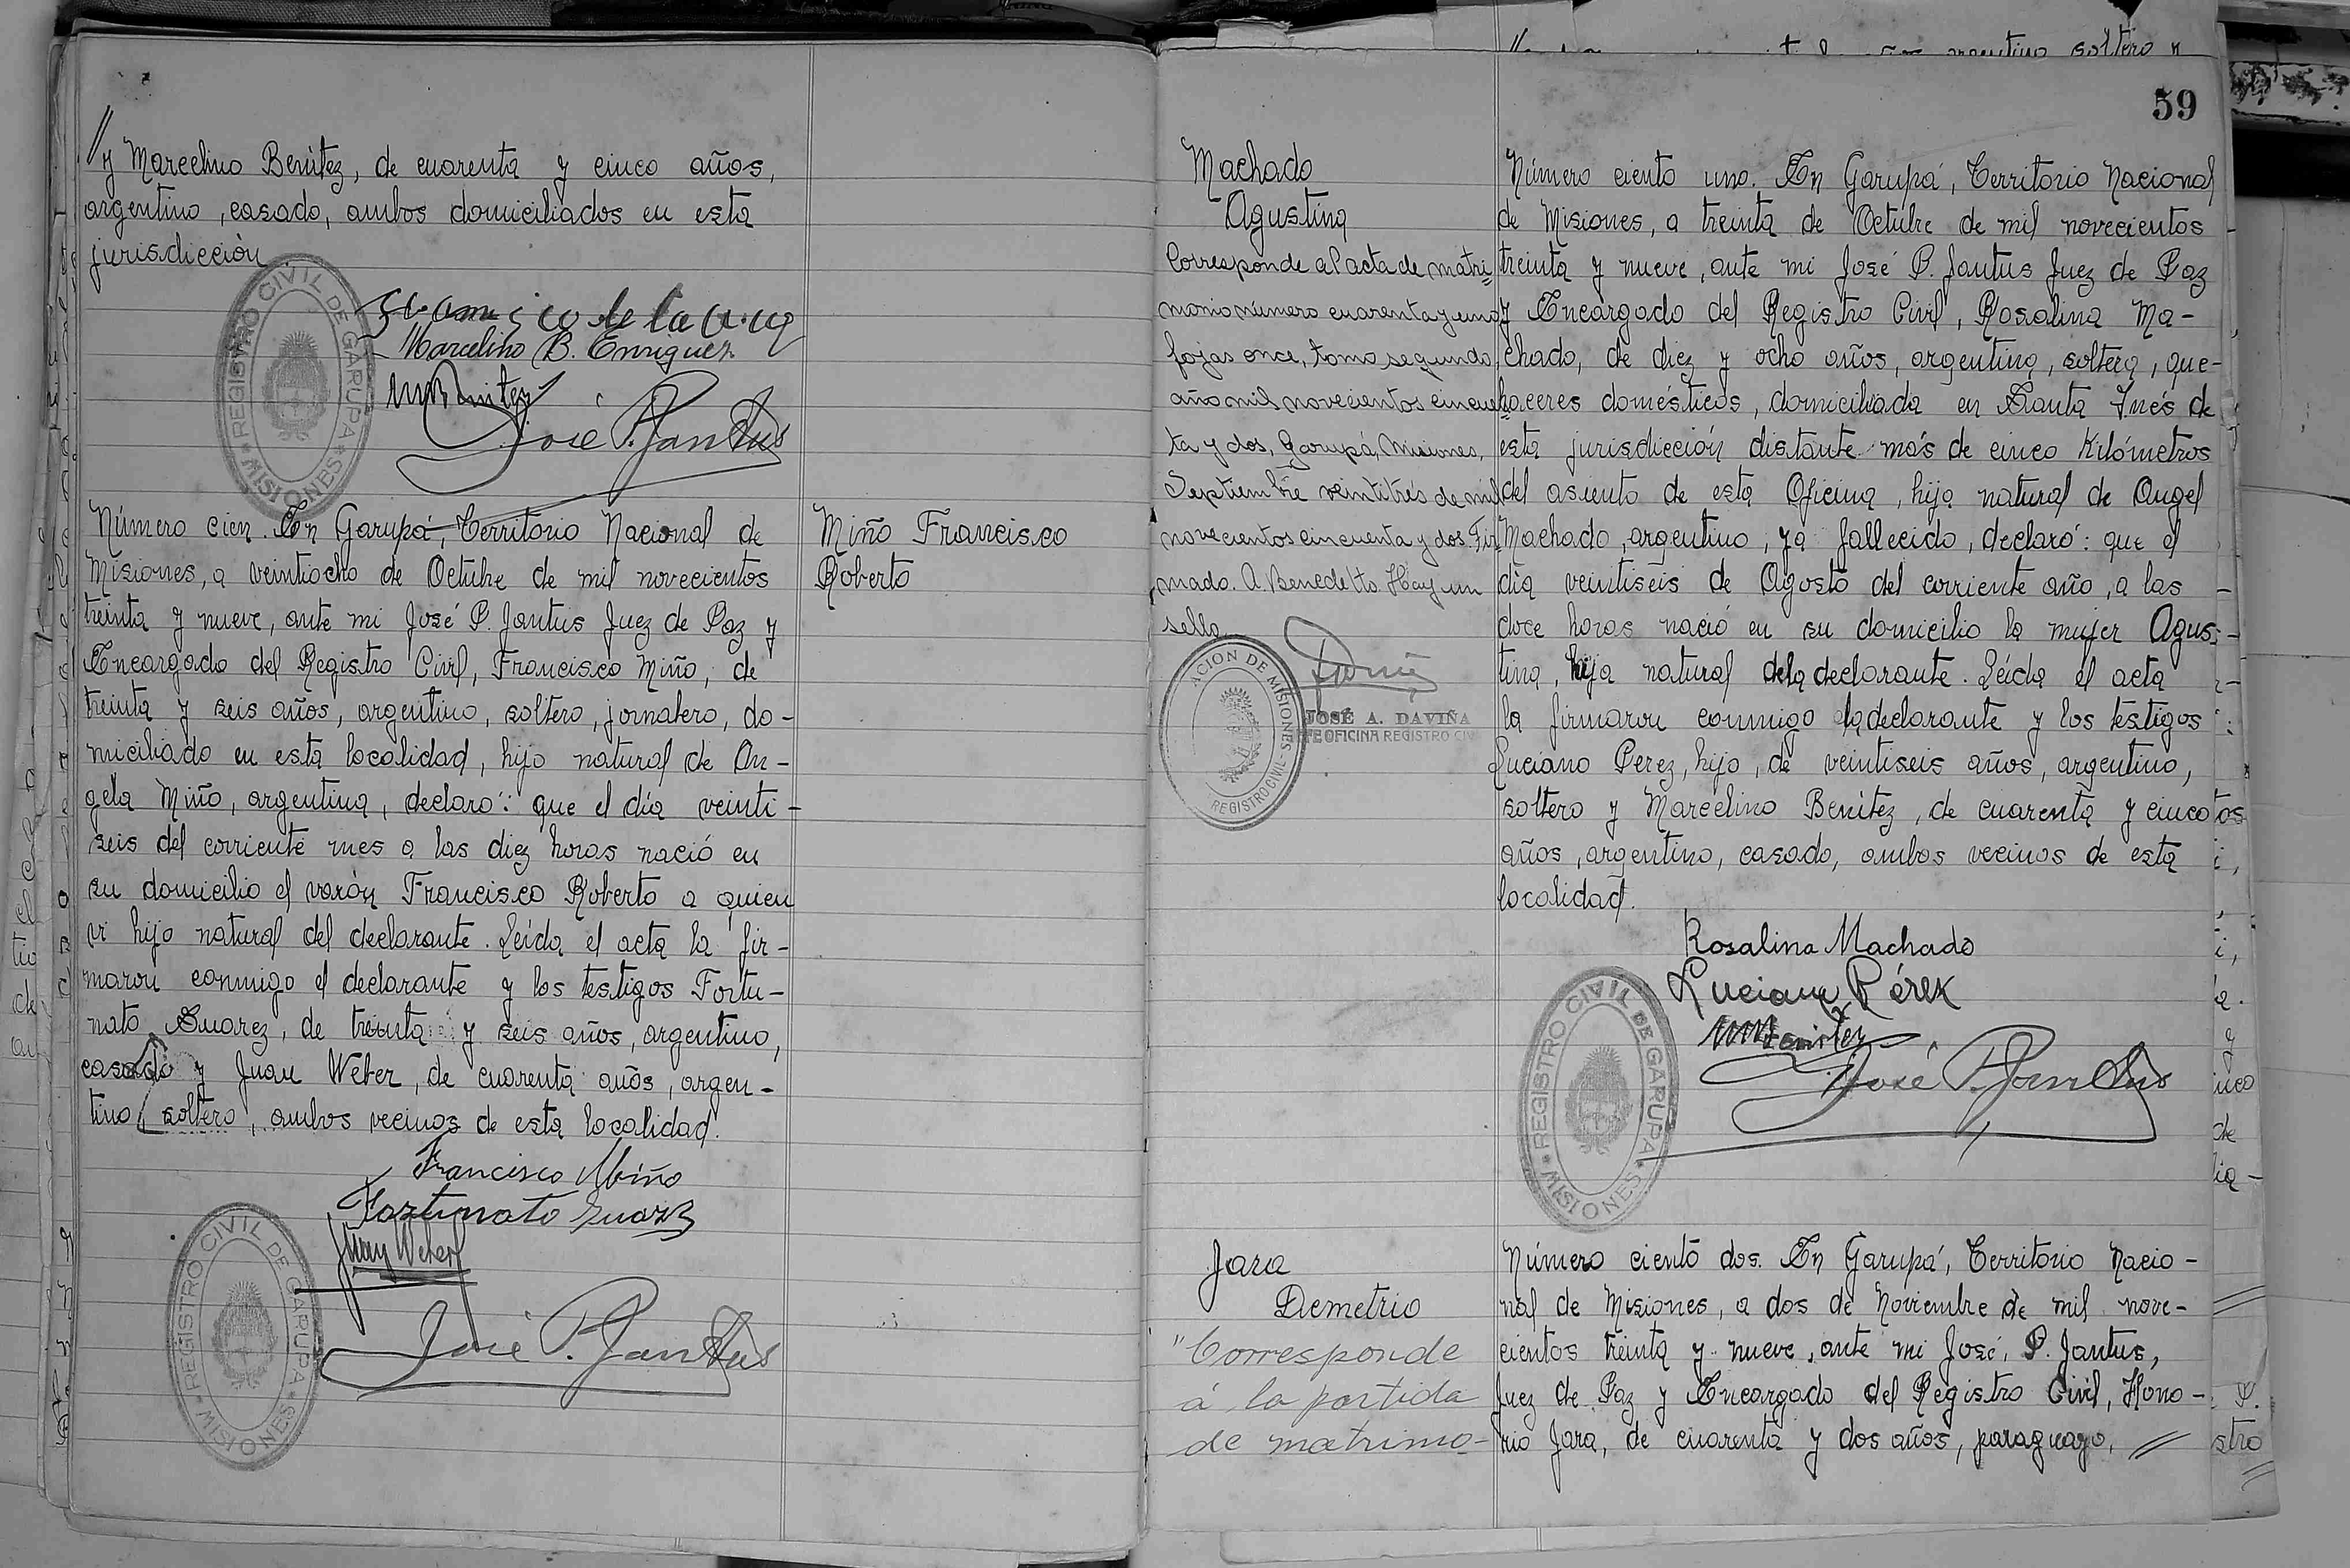 // y Marcelino Benítez, de cuarenta y cinco años,
argentino, casado, ambos domiciliados en esta
jurisdicción.
REGISTRO CIVIL DE GARUPA
MISIONES
de la
Marcelino B. Enriquez
MBenitez
José P. Jantus
Número cien. En Garupá, Territorio Nacional de
Misiones, a veintiocho de Octubre de mil novecientos
treinta y nueve, ante mi José P. Jantus Juez de Paz y
Encargado del Registro Civil, Francisco Miño, de
treinta y seis años, argentino, soltero, jornalero, do-
miciliado en esta localidad, hijo natural de An-
gela Miño, argentina, declaró: que el día veinti-
seis del corriente mes a las diez horas nació en
su domicilio el varón Francisco Roberto a quien
vi hijo natural del declarante. Leída el acta la fir-
maron conmigo el declarante y los testigos Fortu-
nato Suarez, de treinta y seis años, argentino,
casado y Juan Weber, de cuarenta años, argen-
tino, soltero, ambos vecinos de esta localidad.
Francisco Miño
Fortunato Suarez
Juan Weber
José P. Jantus
REGISTRO CIVIL DE GARUPA
MISIONES
Miño Francisco
Roberto
59
Machado
Agustina
Corresponde al acta de matri=
monio número cuarenta y uno
fojas once, tomo segundo,
año mil novecientos cincuen
ta y dos, Garupá, Misiones,
Septiembre veintitrés de mil
novecientos cincuenta y dos. Fir
mado. A. Benedetto. Hay un
sello
ACION DE MISIONES
REGISTRO CIVIL
JOSÉ A. DAVIÑA
FE OFICINA REGISTRO CIV
Número ciento uno. En Garupá, Territorio Nacional
de Misiones, a treinta de Octubre de mil novecientos
treinta y nueve, ante mi José P. Jantus Juez de Paz
y Encargado del Registro Civil, Rosalina Ma-
chado, de diez y ocho años, argentina, soltera, que-
haceres domésticos, domiciliada en Santa Inés de
esta jurisdicción distante más de cinco Kilómetros
del asiento de esta Oficina, hija natural de Angel
Machado, argentino, ya fallecido, declaró: que el
día veintiseis de Agosto del corriente año, a las
doce horas nació en su domicilio la mujer Agus-
tina, hija natural dela declarante. Leída el acta
la firmaron conmigo la declarante y los testigos
Luciano Perez, hijo, de veintiseis años, argentino,
soltero y Marcelino Benítez, de cuarenta y cinco
años, argentino, casado, ambos vecinos de esta
localidad.
Rosalina Machado
Luciano Pérez
MBenitez
José P. Jantus
REGISTRO CIVIL DE GARUPA
MISIONES
Jara
Demetrio
"Corresponde
á la partida
de matrimo-
Número ciento dos. En Garupá, Territorio Nacio-
nal de Misiones, a dos de Noviembre de mil nove-
cientos treinta y nueve, ante mi José, P. Jantus,
Juez de Paz y Encargado del Registro Civil, Hono-
rio Jara, de cuarenta y dos años, paraguayo, //